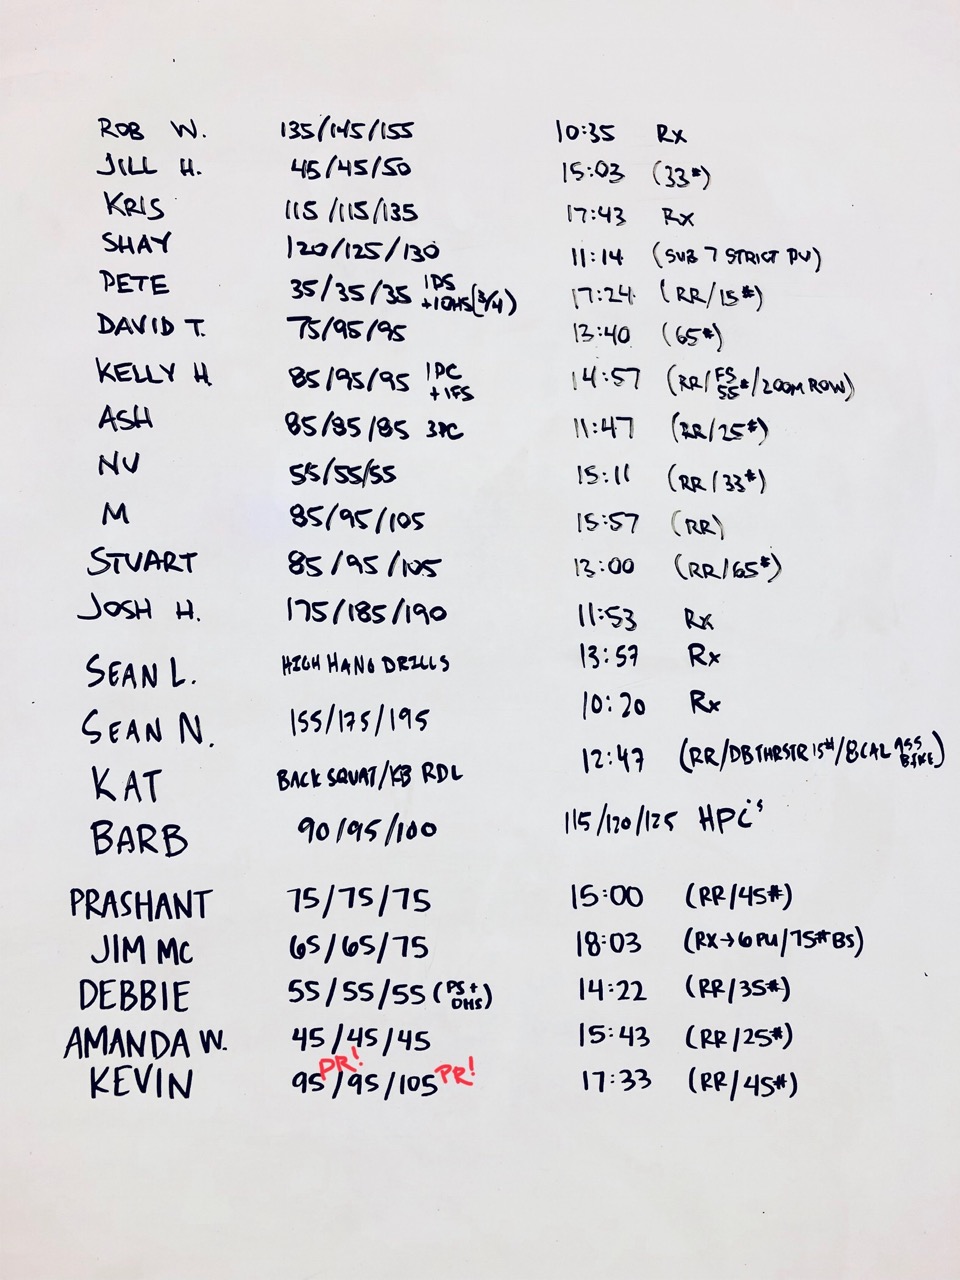 ROB W. 135/145/155 10:35 Rx
JILL H. 45/45/50 15:03 (33#)
KRIS 115/115/135 17:43 Rx
SHAY 120/125/130 11:14 (SUB 7 STRICT PU)
PETE 35/35/35 1PS +1OHS(3/4) 17:24 (RR/15#)
DAVID T. 75/95/95 13:40 (65#)
KELLY H. 85/95/95 1PC +1FS 14:57 (RR/FS 55#/200M ROW)
ASH 85/85/85 3PC 11:47 (RR/25#)
NU 55/55/55 15:11 (RR/33#)
M 85/95/105 15:57 (RR)
STUART 85/95/105 13:00 (RR/65#)
JOSH H. 175/185/190 11:53 Rx
SEAN L. HIGH HANG DRILLS 13:57 Rx
SEAN N. 155/175/195 10:20 Rx
KAT BACK SQUAT/KB RDL 12:47 (RR/DB THRSTR 15#/8 CAL ASS BIKE)
BARB 90/95/100 115/120/125 HPC's
PRASHANT 75/75/75 15:00 (RR/45#)
JIM MC 65/65/75 18:03 (RX→6 PU/75# BS)
DEBBIE 55/55/55 (PS+ OHS) 14:22 (RR/35#)
AMANDA W. 45/45/45 15:43 (RR/25#)
PR! PR!
KEVIN 95/95/105 17:33 (RR/45#)